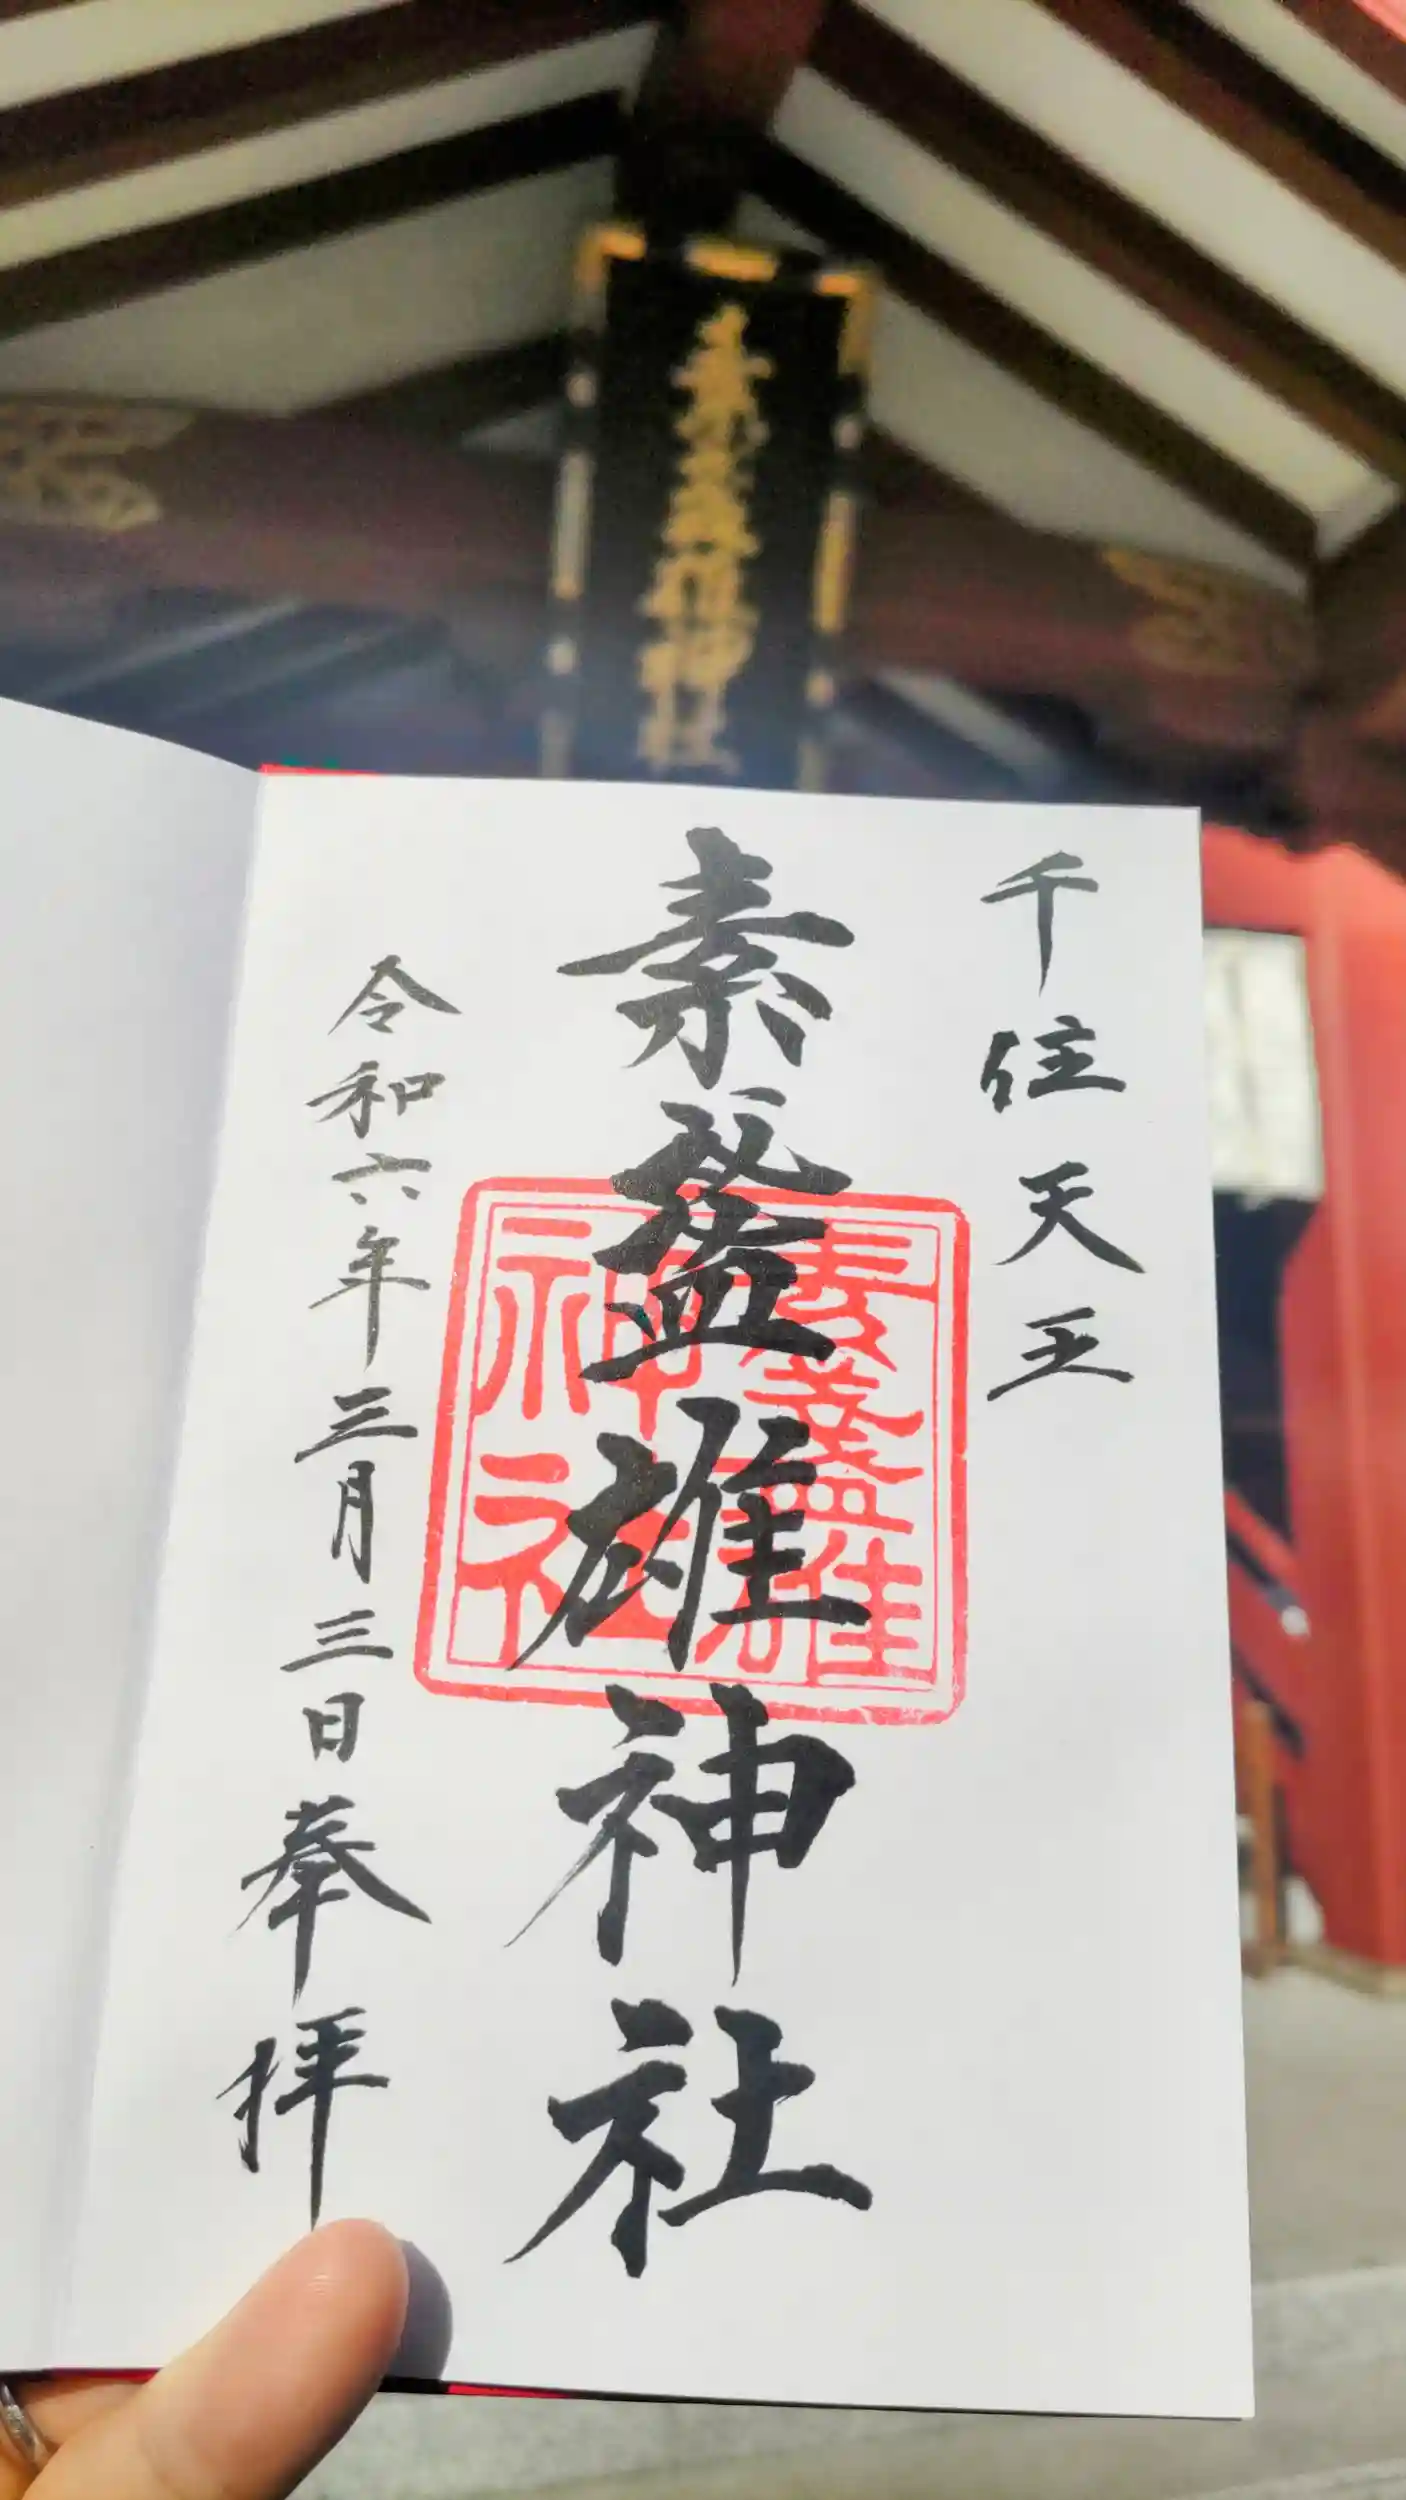 素盞雄神社
千住天王
素盞雄神社
令和六年三月三日奉拝
素盞雄
神社